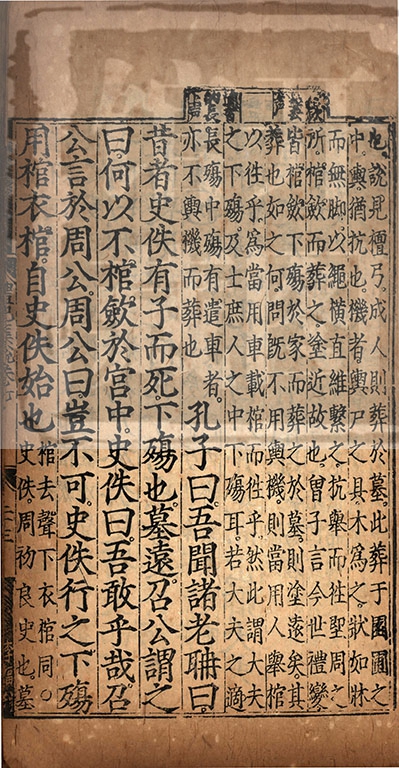 也。說見檀弓。成人則葬於墓。此葬于園圃之
中。輿。猶抗也。機者。輿尸之具。木爲之。狀如牀
而無脚。以繩橫直維繫之。抗舉而徃聖周之
所。棺斂而葬之。塗近故也。曽子言今世禮變。
皆棺斂下殤於家而葬之於墓。則塗遠矣。其
葬也如之何。問既不用輿機。則當用人舉棺
以徃乎。爲當用車載棺而徃乎。然此謂大夫
之下殤。及士庶人之中下殤耳。若大夫之適
長殤中殤有遣車者。
亦不輿機而葬也
孔子曰。吾聞諸老聃曰。
昔者史佚有子而死。下殤也。墓遠。召公謂之
曰。何以不棺斂於宮中。史佚曰。吾敢乎哉。召
公言於周公。周公曰。豈不可。史佚行之。下殤
用棺衣棺。自史佚始也。
棺去聲下衣棺同。○
史佚。周初良史也。墓